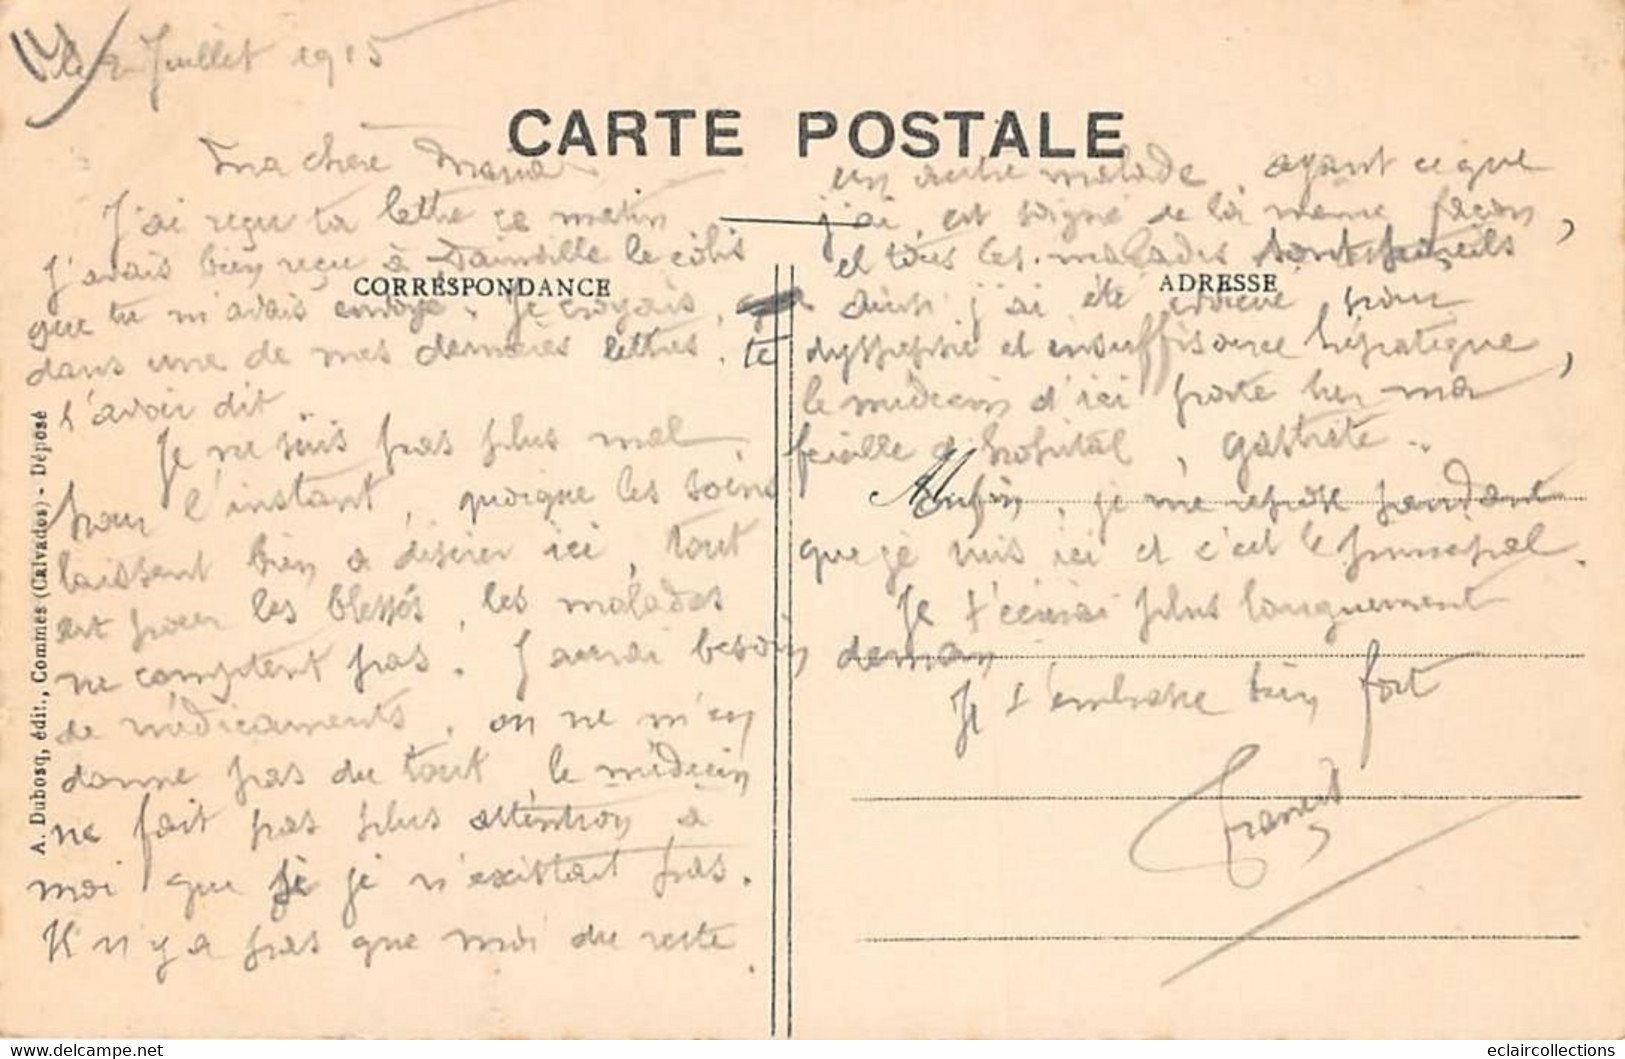 Juillet 1915
CARTE POSTALE
Ma chère Maria
J'ai reçu ta lettre ce matin
J'avais bien reçu à Dainville le colis
CORRESPONDANCE
que tu m'avais envoyé. Je croyais,
dans une de mes dernières lettres, te
l'avoir dit
Je ne suis pas plus mal
pour l'instant, quoique les soins
laissent bien a désirer ici, tout
est pour les blessés, les malades
ne comptent pas. J'aurai besoin
de médicaments, on ne m'en
donne pas du tout, le médecin
ne fait pas plus attention a
moi que si je n'existait pas.
Il n'y a pas que moi du reste
un autre malade ayant ce que
j'ai, est soigné de la meme façon,
et tous les malades sont pareils
ADRESSE
ainsi j'ai été évacué pour
dyspepsie et insuffisance hépatique,
le médecin d'ici porte sur ma
feuille d'hopital, gastrite..
Enfin, je me repose pendant
que je suis ici et c'est le principal.
Je t'écrirai plus longuement
demain
Je t'embrasse bien fort
Francis
A. Dubosq, édit., Commes (Calvados) - Déposé
eclaircollections